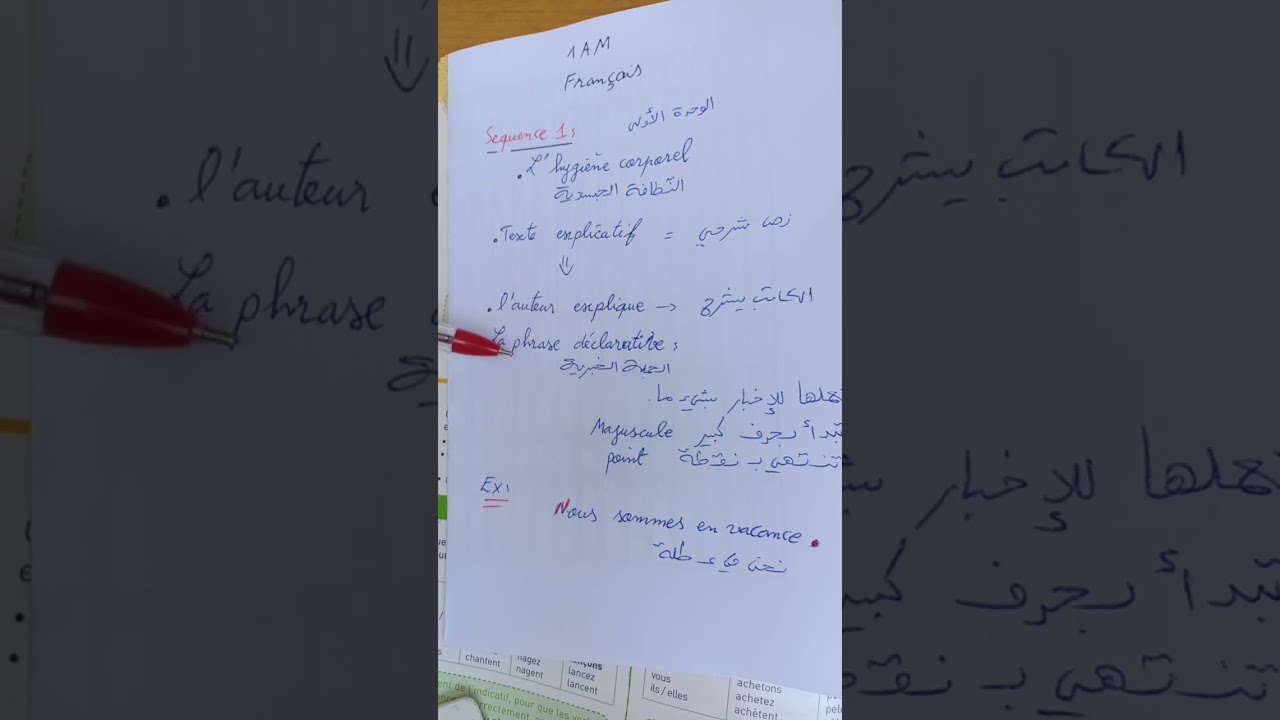 1 AM
Français
Sequence 1: الوحدة الأولى
. L'hygiène corporel
النظافة الجسدية
. Texte explicatif = نص شرحي
⇓
. l'auteur explique → الكاتب يشرح
La phrase déclarative :
الجملة الخبرية
للإخبار بشيء ما.
Majuscule بحرف كبير
point تنتهي بـ نقطة
Ex:
Nous sommes en vacance.
نحن في عطلة
chantent
nagez
nagent
lancez
lancent
vous
ils / elles
achetons
achetez
achètent